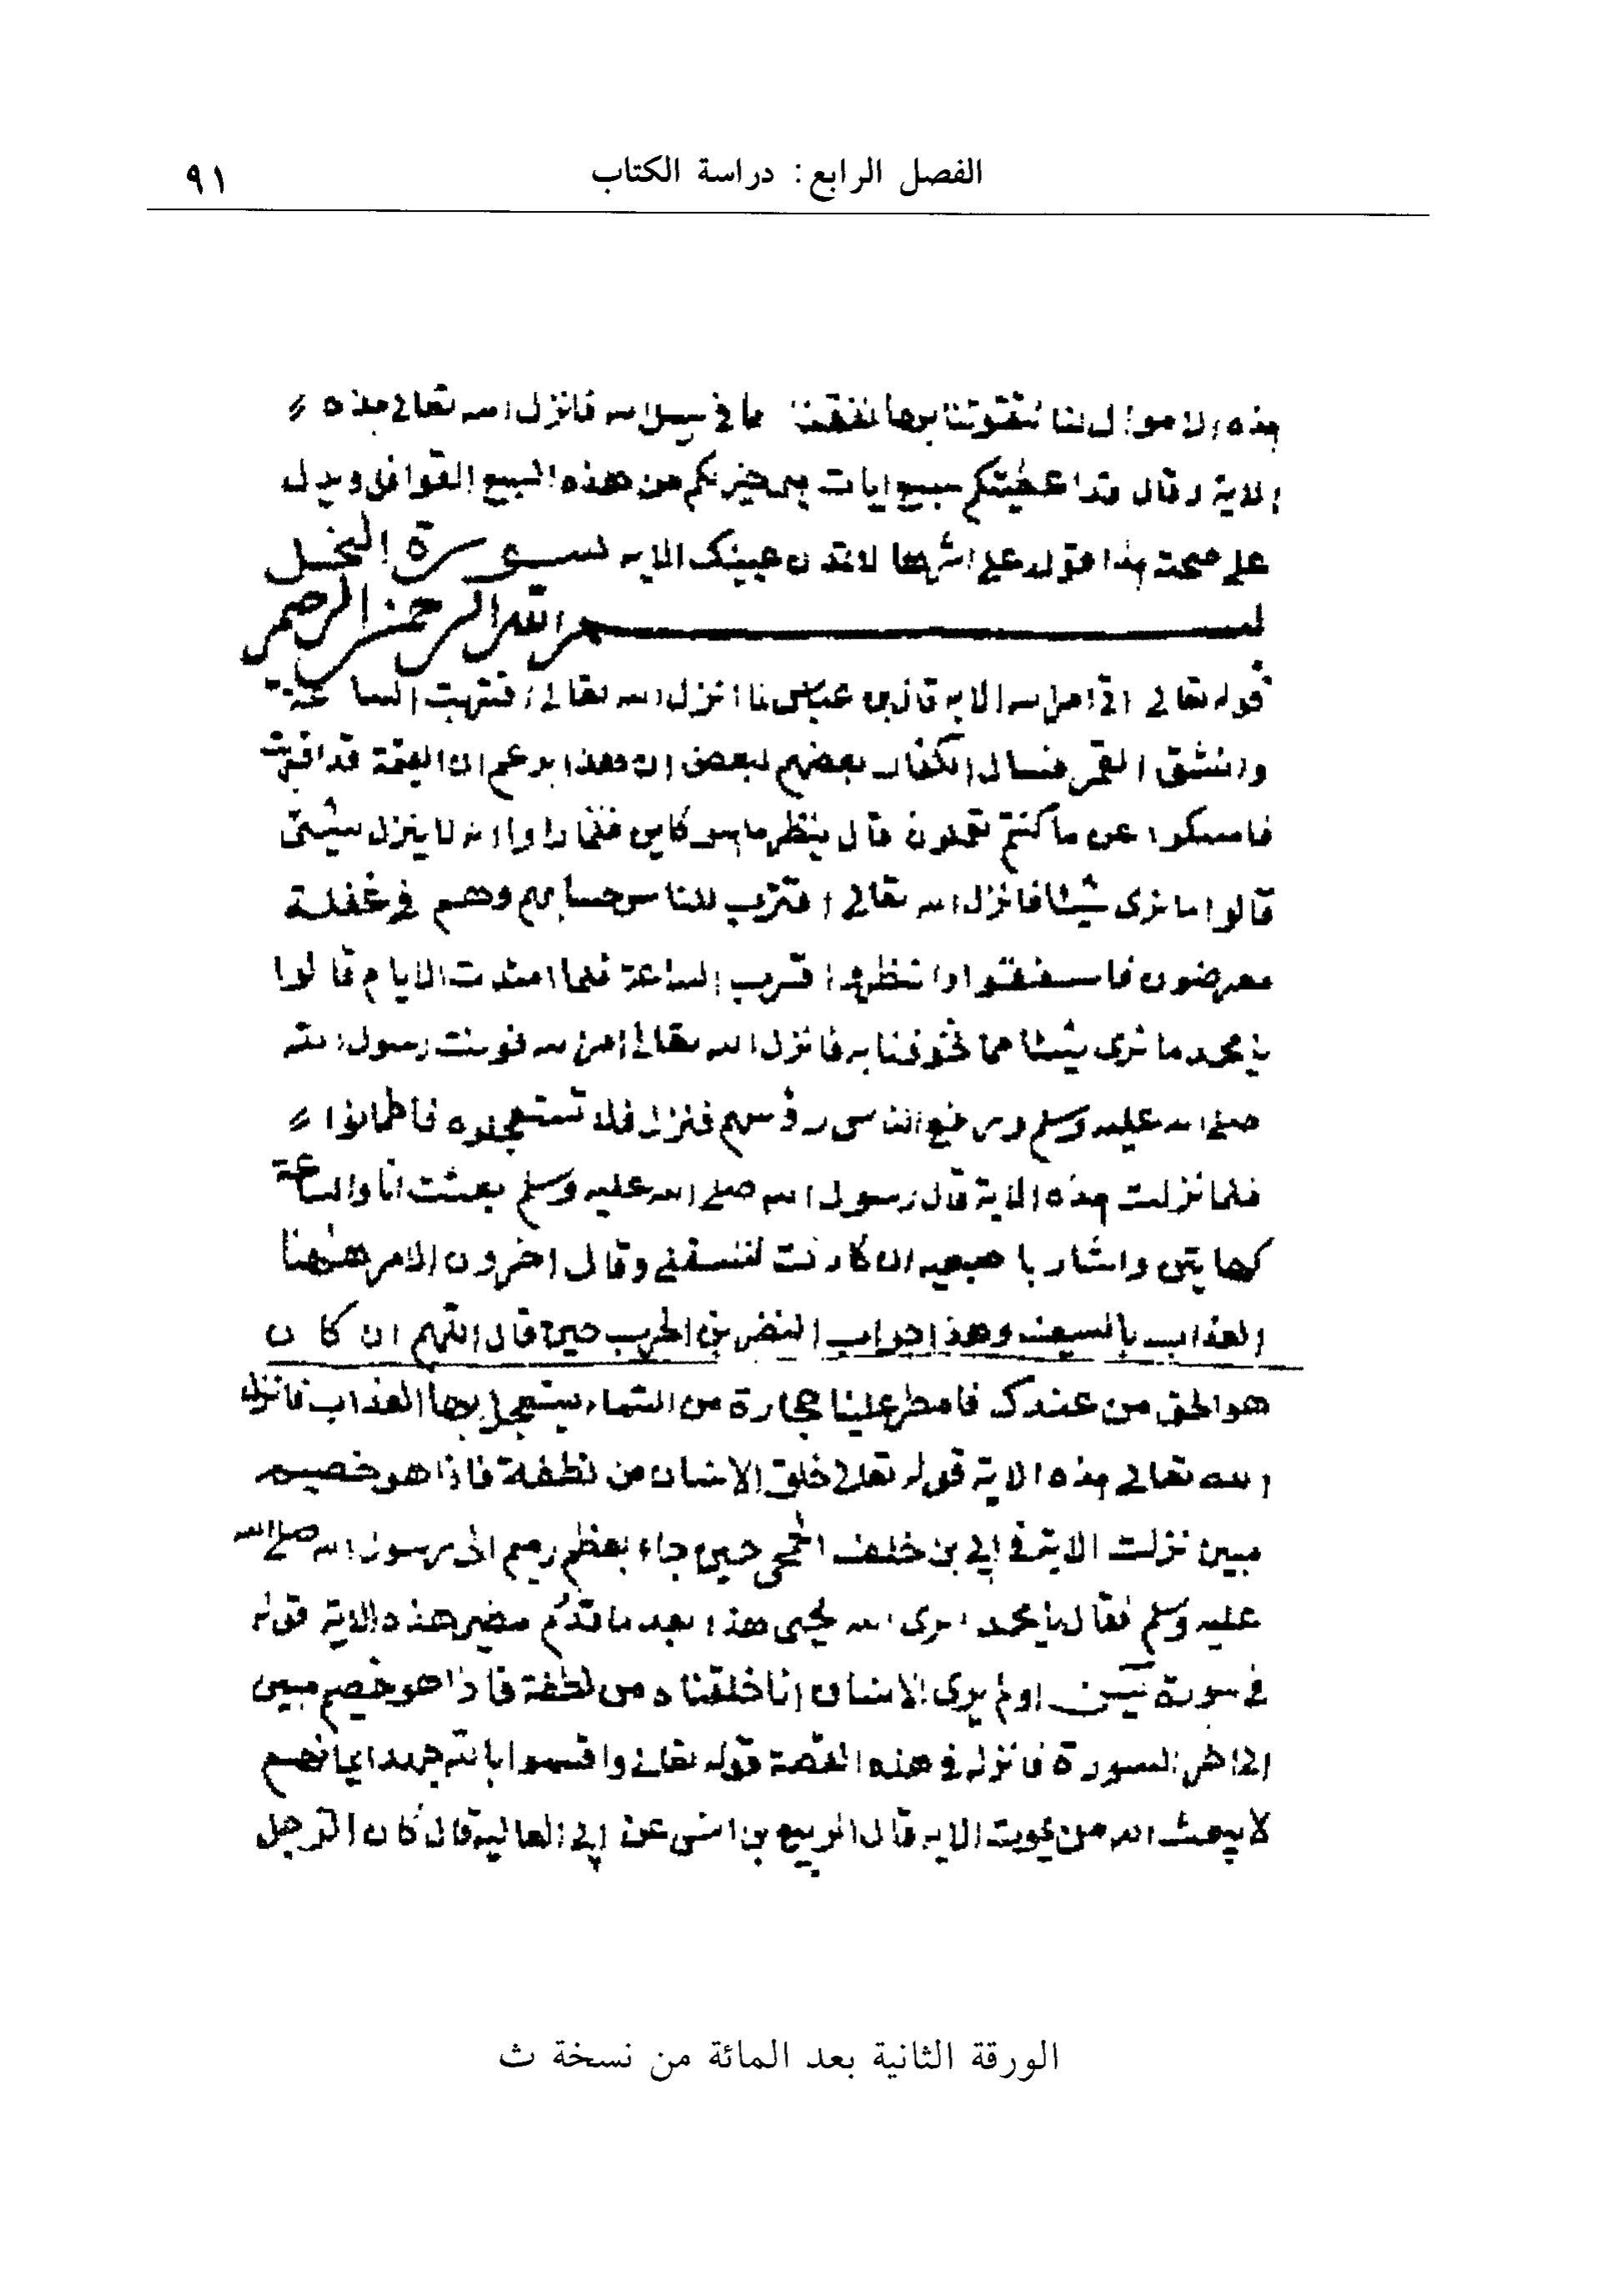 الفصل الرابع: دراسة الكتاب ٩١
هذه الاموال لنا لتقوينا بها لنفقنا ها في سبيل الله فانزل الله تعالى هذه
الاية وقال قد اعطيتكم سبع ايات هي خير لكم من هذه السبع القوافل ويدل
على صحة هذا قوله على اثرها لا تمدن عينيك الايه سورة النحل
بسم الله الرحمن الرحيم
قوله تعالى اتى امر الله الايه قال بن عباس لما انزل الله تعالى اقتربت الساعة
وانشق القمر فقال الكفار بعضهم لبعض ان هذا يزعم ان القيمة قد اقتربت
فامسكوا عن ما كنتم تعملون قال ينظر ما هو كاين فلما راوا انه لا ينزل شيئ
قالوا ما نرى شيئا فانزل الله تعالى اقترب للناس حسابهم وهم في غفلة
معرضون فاشفقوا وانتظروا قرب الساعة فلما امتدت الايام قالوا
يا محمد ما نرى شيئا مما تخوفنا به فانزل الله تعالى اتى امر الله فوثبت رسول الله
صلى الله عليه وسلم ورفع الناس رؤسهم فنزل فلا تستعجلوه فاطمانوا
فلما نزلت هذه الاية قال رسول الله صلى الله عليه وسلم بعثت انا والساعة
كهاتين واشار باصبعيه ان كادت لتسبقني وقال اخرون الامر ههنا
العذاب بالسيف وهذا جواب النضر بن الحرب حين قال اللهم ان كان
هو الحق من عندك فامطر علينا حجارة من السماء يستعجل بها العذاب فانزل
الله تعالى هذه الاية قوله تعلى خلق الانسان من نطفة فاذا هو خصيم
مبين نزلت الاية في ابي بن خلف الجمحي حين جاء بعظم رميم الى رسول الله صلى الله
عليه وسلم فقال يا محمد اترى الله يحيى هذا بعد ما قد رم نظير هذه الاية قوله
في سورة يٓسن اولم يرى الانسان انا خلقناه من نطفة فاذا هو خصيم مبين
الى اخر السورة فانزله في هذه القصة قوله تعالى واقسموا بالله جهد ايمانهم
لا يبعث الله من يموت الايه قال الربيع بن انس عن ابي العالية قال كان الرجل
الورقة الثانية بعد المائة من نسخة ث